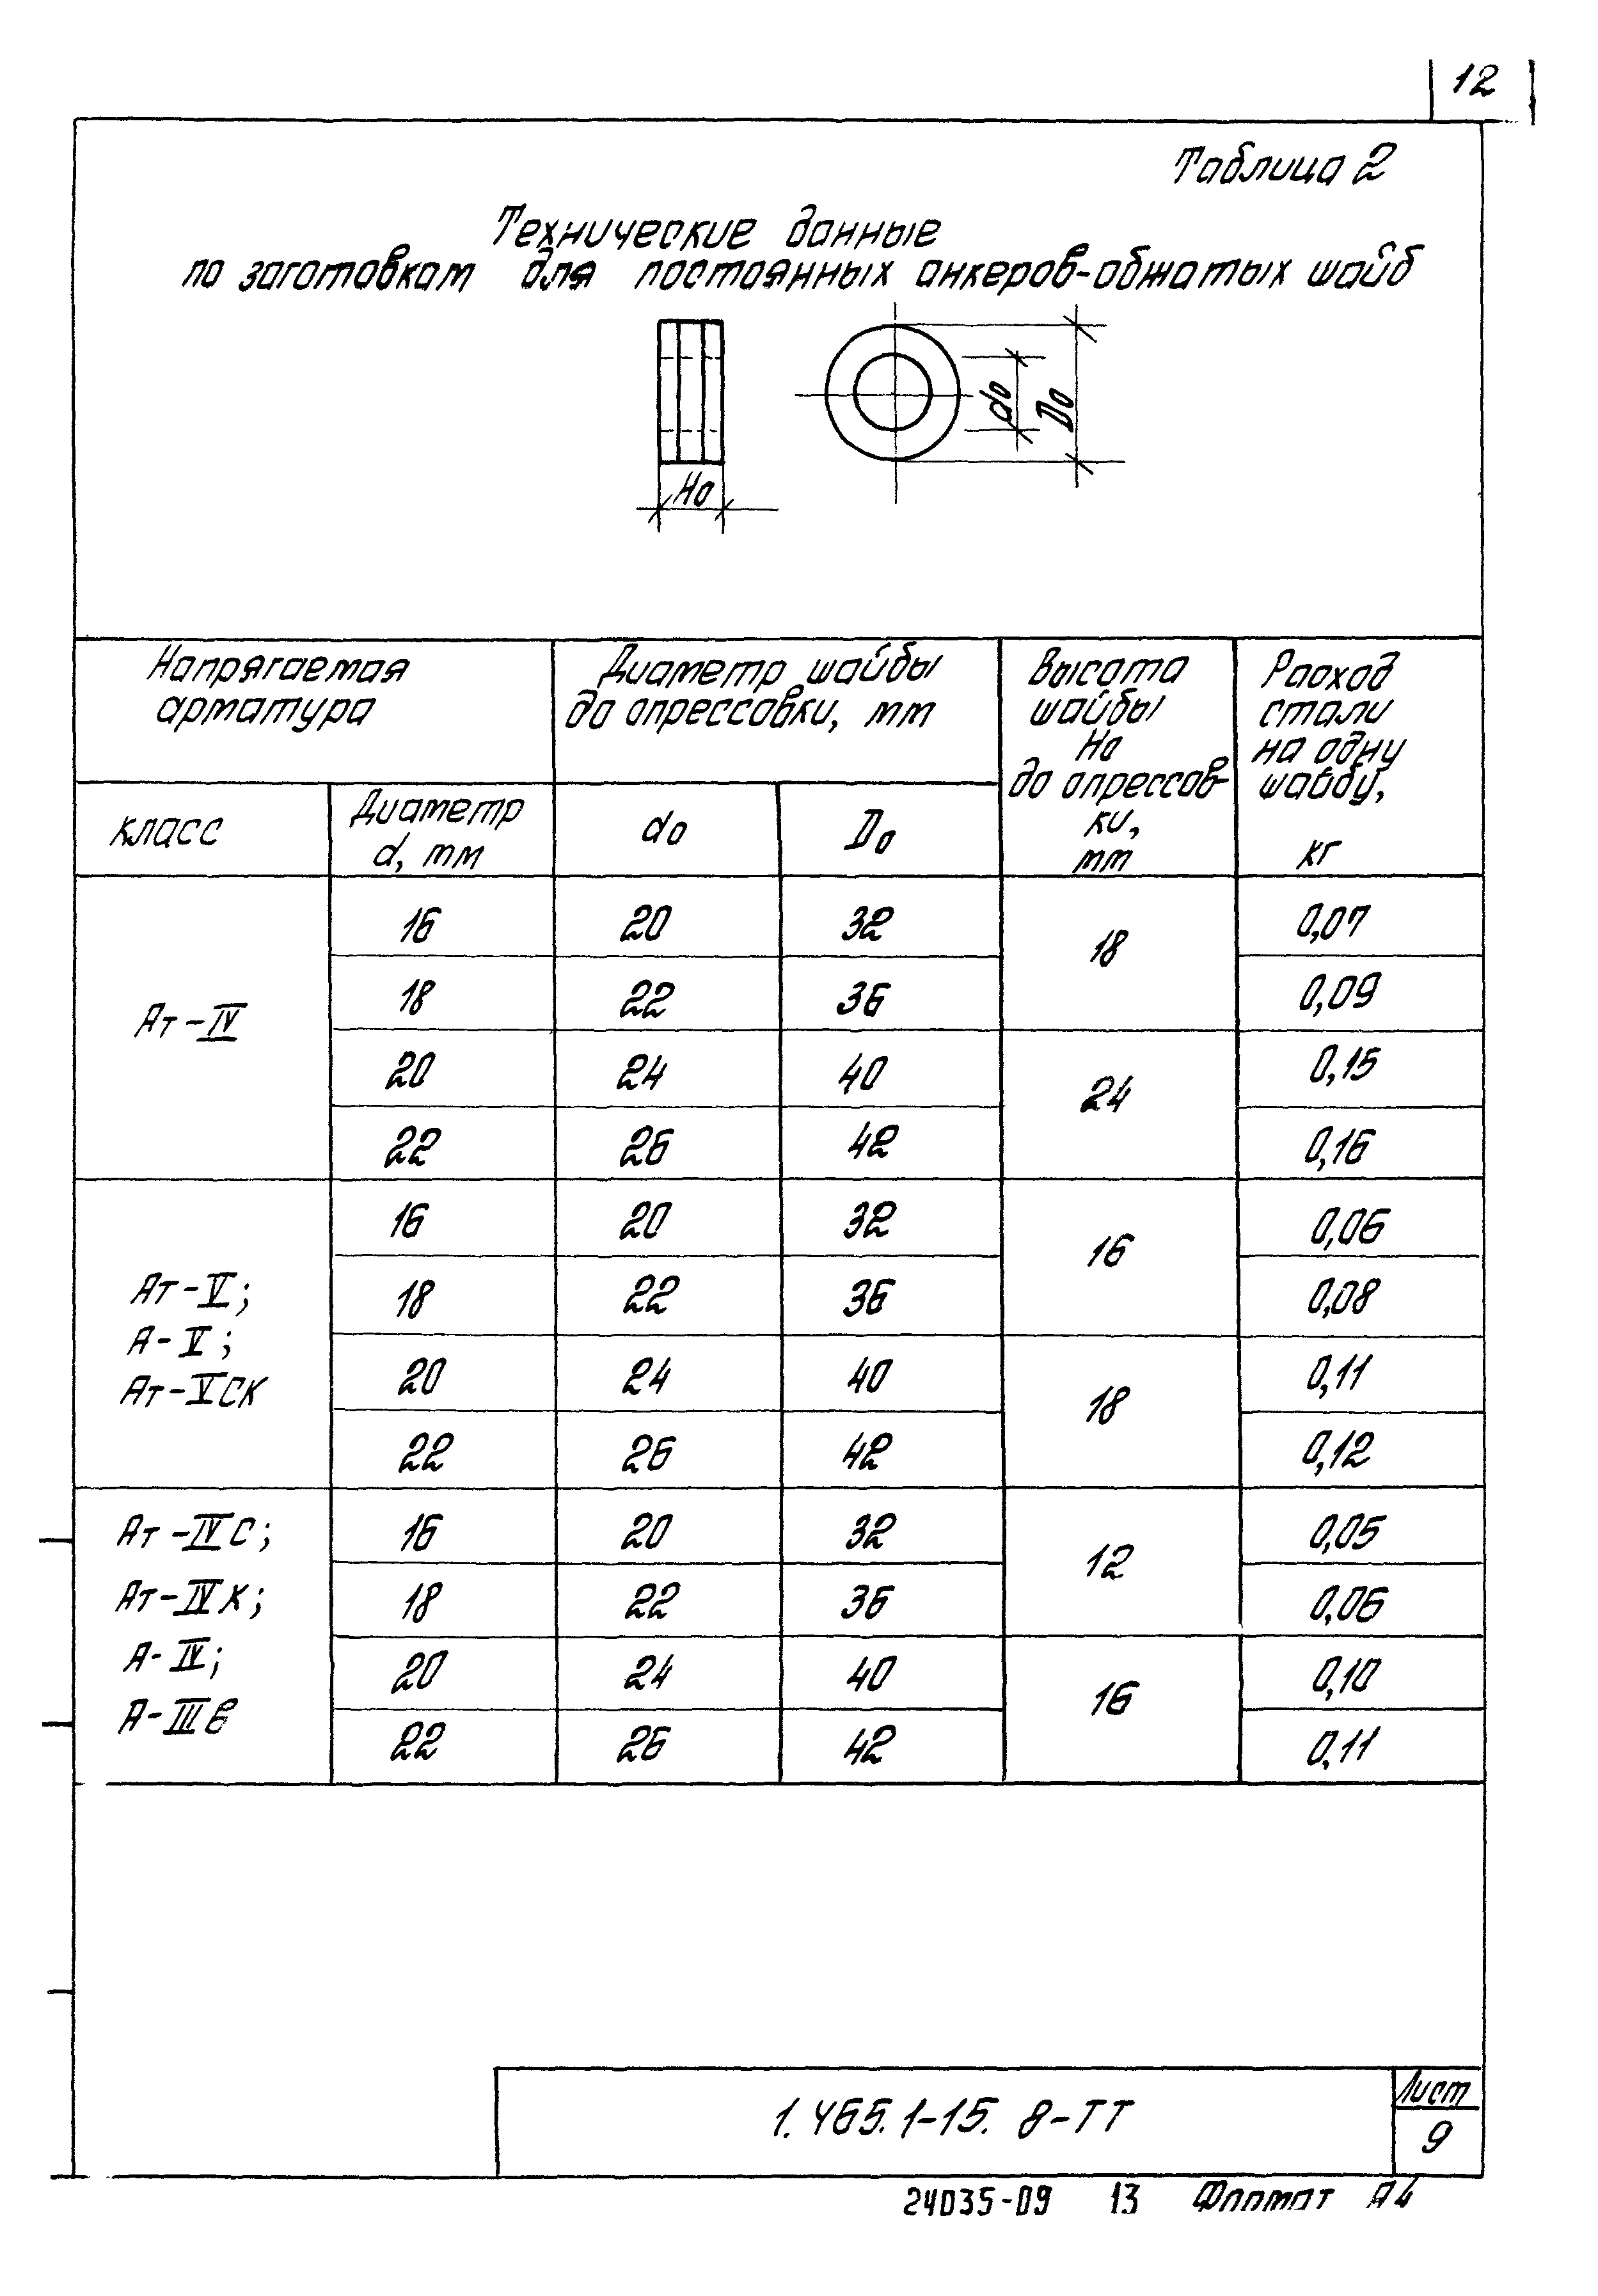 12
Таблица 2
Технические данные
по заготовкам для постоянных анкеров-обжатых шайб
d0
D0
H0
Напрягаемая арматура
Диаметр шайбы до опрессовки, мм
Высота шайбы H0 до опрессов-ки, мм
Расход стали на одну шайбу, кг
класс
Диаметр d, мм
d0
D0
Ат-IV
16 20 32 18 0,07
18 22 36 0,09
20 24 40 24 0,15
22 26 42 0,16
Ат-V;
А-V;
Ат-VСК
16 20 32 16 0,06
18 22 36 0,08
20 24 40 18 0,11
22 26 42 0,12
Ат-IVС;
Ат-IVК;
А-IV;
А-IIIв
16 20 32 12 0,05
18 22 36 0,06
20 24 40 16 0,10
22 26 42 0,11
1.465.1-15. 8-ТТ
Лист
9
24035-09 13 Формат А4